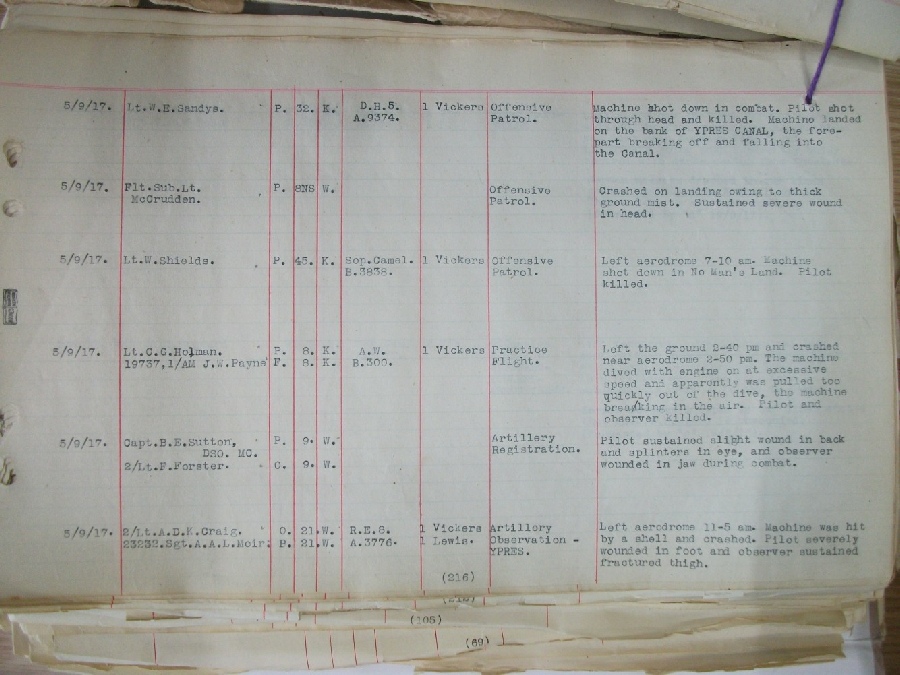 5/9/17. Lt.W.E.Sandys. P. 32. K. D.H.5. 1 Vickers Offensive Machine shot down in combat. Pilot shot
A.9374. Patrol. through head and killed. Machine landed
on the bank of YPRES CANAL, the fore-
part breaking off and falling into
the Canal.
5/9/17. Flt.Sub.Lt. P. 8NS W. Offensive Crashed on landing owing to thick
McCrudden. Patrol. ground mist. Sustained severe wound
in head.
5/9/17. Lt.W.Shields. P. 45. K. Sop.Camel. 1 Vickers Offensive Left aerodrome 7-10 am. Machine
B.3838. Patrol. shot down in No Man's Land. Pilot
killed.
5/9/17. Lt.C.C.Holman. P. 8. K. A.W. 1 Vickers Practice Left the ground 2-40 pm and crashed
19737,1/AM J.W.Payne F. 8. K. B.300. Flight. near aerodrome 2-50 pm. The machine
dived with engine on at excessive
speed and apparently was pulled too
quickly out of the dive, the machine
breaking in the air. Pilot and
observer killed.
5/9/17. Capt.B.E.Sutton, P. 9. W. Artillery Pilot sustained slight wound in back
DSO. MC. Registration. and splinters in eye, and observer
2/Lt.F.Forster. O. 9. W. wounded in jaw during combat.
5/9/17. 2/Lt.A.D.K.Craig. O. 21. W. R.E.8. 1 Vickers Artillery Left aerodrome 11-5 am. Machine was hit
23232.Sgt.A.A.L.Moir. P. 21. W. A.3776. 1 Lewis. Observation - by a shell and crashed. Pilot severely
YPRES. wounded in foot and observer sustained
fractured thigh.
(216)
(105)
(69)